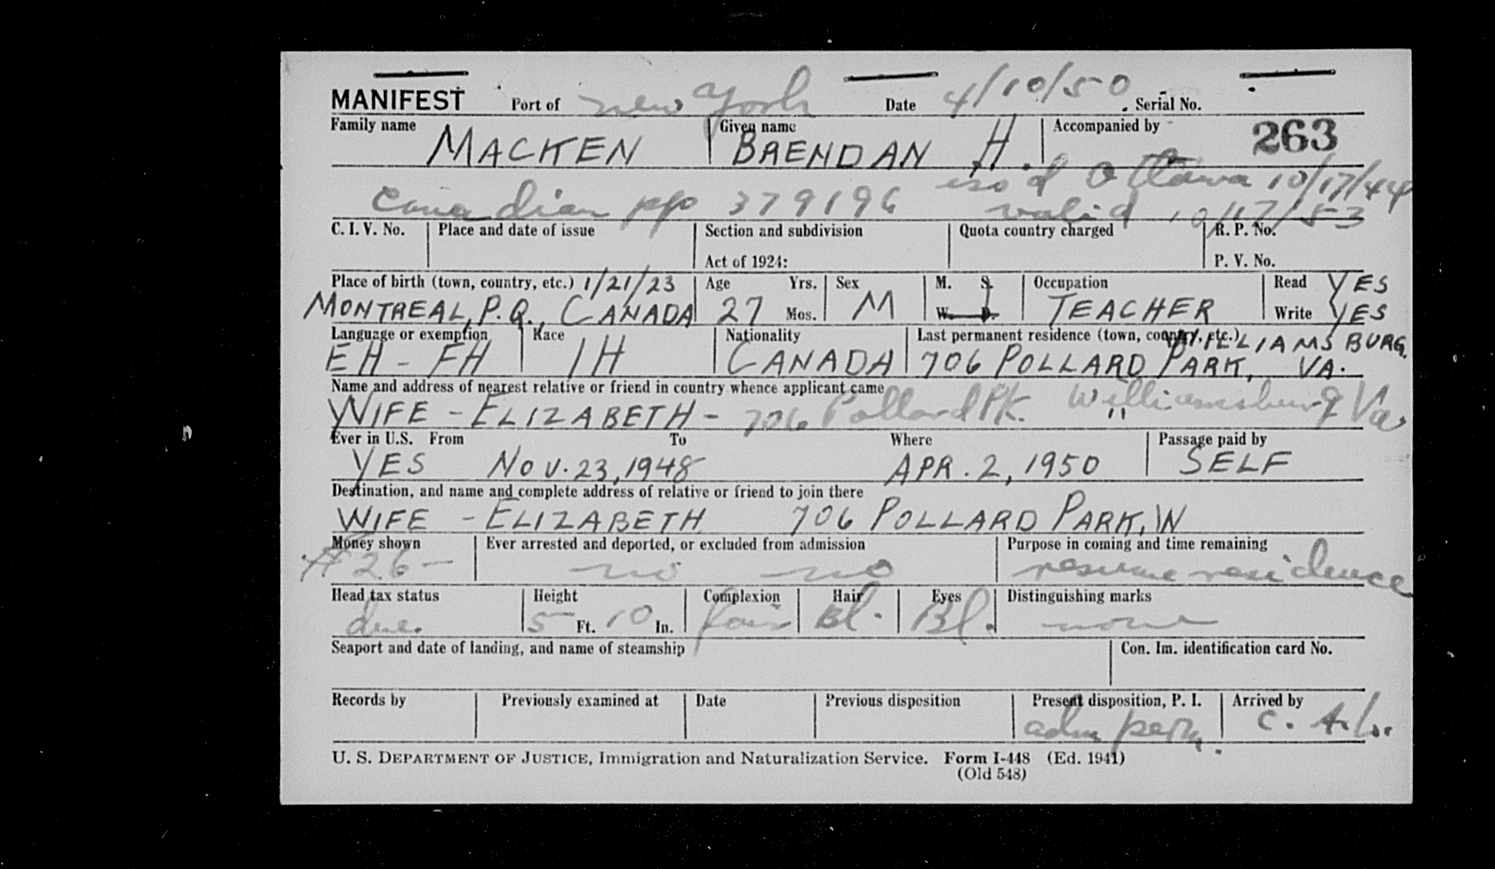 MANIFEST Port of new York Date 4/10/50 Serial No.
Family name Given name Accompanied by 263
MACKEN BRENDAN H.
Canadian ppo 379196 iss'd Ottawa 10/17/44
valid 10/17/53
C. I. V. No. Place and date of issue Section and subdivision Quota country charged R. P. No.
Act of 1924: P. V. No.
Place of birth (town, country, etc.) 1/21/23 Age Yrs. Sex M. S. Occupation Read YES
MONTREAL, P.Q. CANADA 27 Mos. M W. D. TEACHER Write YES
Language or exemption Race Nationality Last permanent residence (town, country, etc.) WILLIAMSBURG,
EH - FH IH CANADA 706 POLLARD PARK, VA.
Name and address of nearest relative or friend in country whence applicant came
WIFE - ELIZABETH - 706 Pollard Pk. " Williamsburg Va
Ever in U.S. From To Where Passage paid by
YES NOV. 23, 1948 APR. 2, 1950 SELF
Destination, and name and complete address of relative or friend to join there
WIFE - ELIZABETH 706 POLLARD PARK, W
Money shown Ever arrested and deported, or excluded from admission Purpose in coming and time remaining
$26- no no resume residence
Head tax status Height Complexion Hair Eyes Distinguishing marks
due. 5 Ft. 10 In. fair Bl. Bl. none
Seaport and date of landing, and name of steamship Con. Im. identification card No.
Records by Previously examined at Date Previous disposition Present disposition, P. I. Arrived by
adm perm. C.
U. S. DEPARTMENT OF JUSTICE, Immigration and Naturalization Service. Form I-448 (Ed. 1941)
(Old 548)